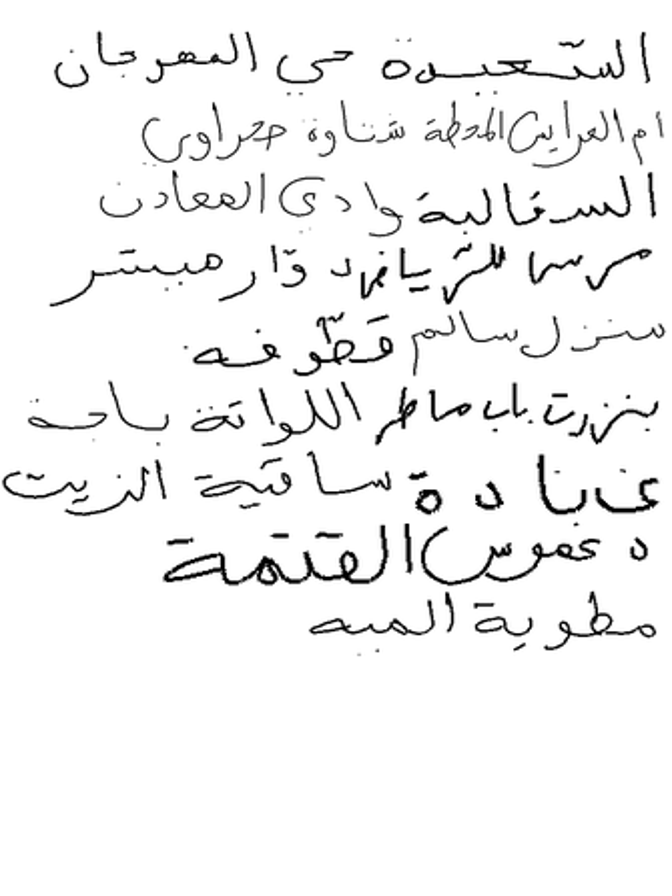 السّعيدة حي المهرجان
ام العرايس المحطة شناوة صحراوي
السفالية وادي المعادن
مرسى الثريا فرد دوّار مبستر
منزل سالم قطّوفه
بنزرت باب ماطر اللواتة باجة
عبّادة ساقية الزيت
دعموس القتمة
مطوية المية